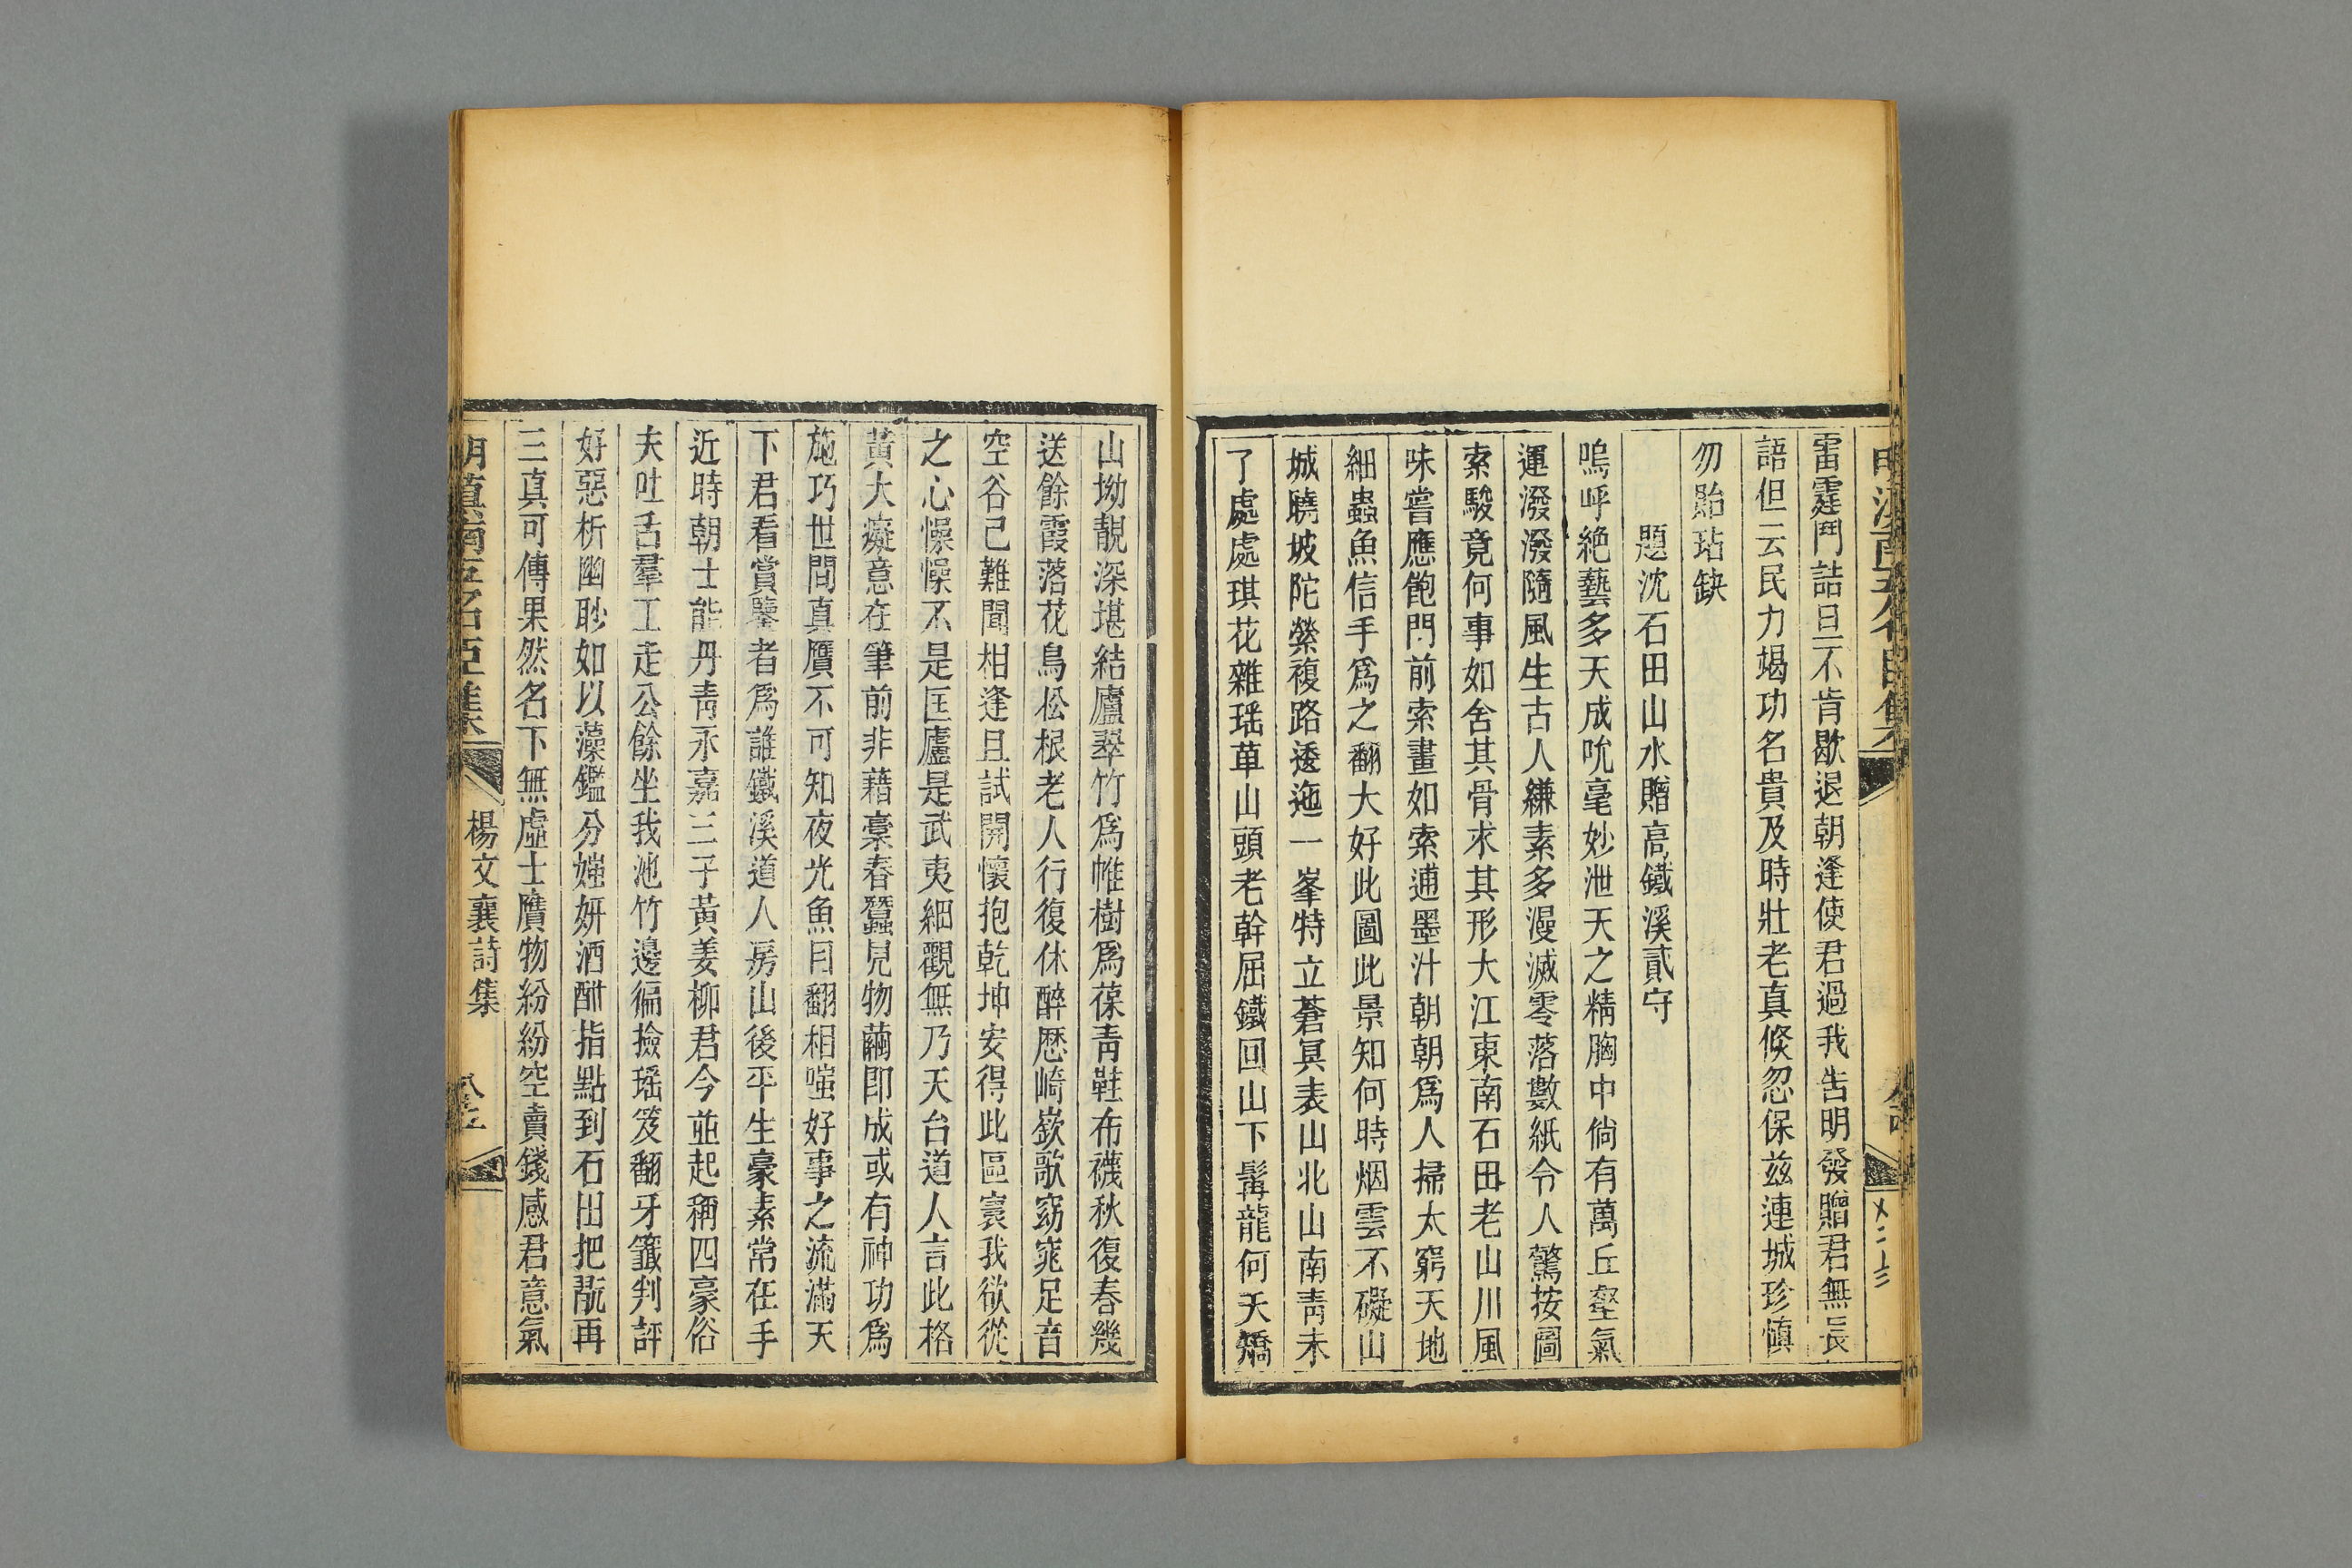 雷霆鬥詰旦不肯歇退朝逢使君過我告明發贈君無長
語但云民力竭功名貴及時壯老真倐忽保兹連城珍慎
勿貽玷缺
題沈石田山水贈高鐵溪貳守
嗚呼絶藝多天成吮毫妙泄天之精胸中倘有萬丘壑氣
運潑潑隨風生古人縑素多漫滅零落數紙令人驚按圖
索駿竟何事如舍其骨求其形大江東南石田老山川風
味嘗應飽門前索畫如索逋墨汁朝朝爲人掃太窮天地
細蟲魚信手爲之翻大好此圖此景知何時烟雲不礙山
城曉坡陀縈複路透迤一峯特立蒼冥表山北山南青未
了處處琪花雜瑶草山頭老幹屈鐵回山下髯龍何夭矯
山坳靚深堪結廬翠竹爲帷樹爲葆青鞋布襪秋復春幾
送餘霞落花鳥松根老人行復休醉歷崎嶔歌窈窕足音
空谷已難聞相逢且試開懷抱乾坤安得此區寰我欲從
之心懆懆不是匡廬是武夷細觀無乃天台道人言此格
黃大癡意在筆前非藉稾春蠶見物繭即成或有神功爲
施巧世間真贋不可知夜光魚目翻相嗤好事之流滿天
下君看賞鑒者爲誰鐵溪道人房山後平生豪素常在手
近時朝士能丹青永嘉三子黃姜柳君今並起稱四豪俗
夫吐舌羣工走公餘坐我池竹邊徧撿瑶笈翻牙籤判評
好惡析幽眇如以藻鑑分媸妍酒酣指點到石田把翫再
三真可傳果然名下無虛士贋物紛紛空賣錢感君意氣
楊文襄詩集